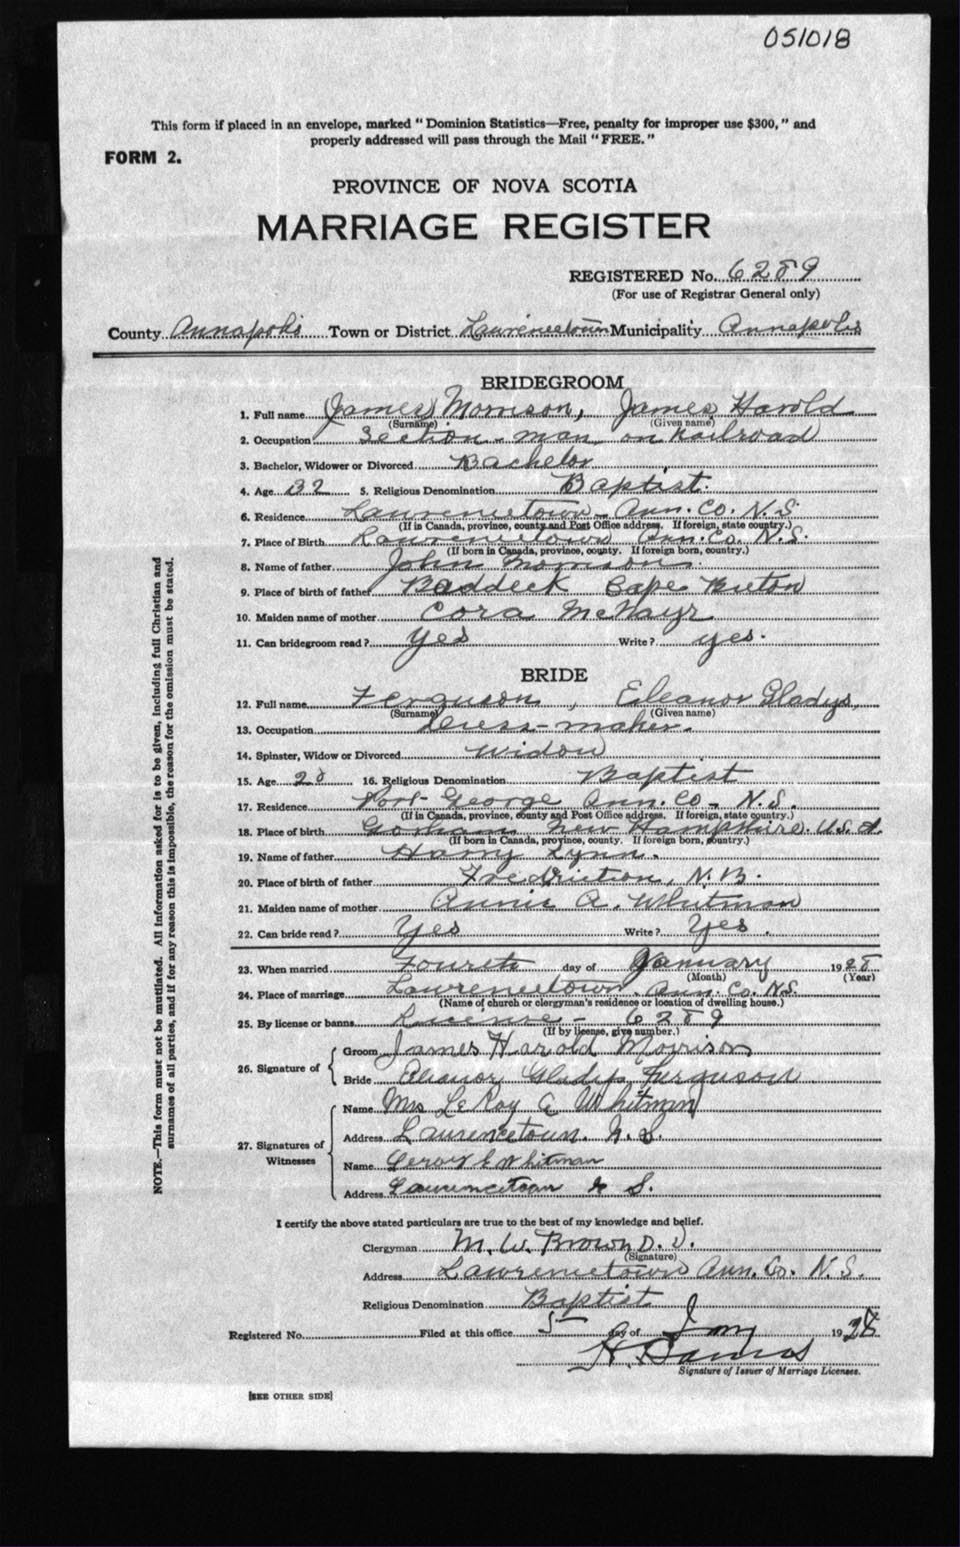 051018
This form if placed in an envelope, marked "Dominion Statistics—Free, penalty for improper use $300," and
properly addressed will pass through the Mail "FREE."
FORM 2.
PROVINCE OF NOVA SCOTIA
MARRIAGE REGISTER
REGISTERED No. 6289
(For use of Registrar General only)
County Annapolis Town or District Lawrencetown Municipality Annapolis
BRIDEGROOM
1. Full name (James) Morrison, James Harold
(Surname) (Given name)
2. Occupation Section-man on Railroad
3. Bachelor, Widower or Divorced Bachelor
4. Age 32 5. Religious Denomination Baptist.
6. Residence Lawrencetown Ann. Co. N.S.
(If in Canada, province, county and Post Office address. If foreign, state country.)
7. Place of Birth Lawrencetown Ann. Co. N.S.
(If born in Canada, province, county. If foreign born, country.)
8. Name of father John Morrison.
9. Place of birth of father Baddeck Cape Breton
10. Maiden name of mother Cora McNayr
11. Can bridegroom read? Yes Write? yes.
BRIDE
12. Full name Ferguson, Eileanor Gladys,
(Surname) (Given name)
13. Occupation Dress-maker.
14. Spinster, Widow or Divorced Widow
15. Age 28 16. Religious Denomination Baptist
17. Residence Port George Ann. Co. N.S.
(If in Canada, province, county and Post Office address. If foreign, state country.)
18. Place of birth Gorham New Hampshire. U.S.A.
(If born in Canada, province, county. If foreign born, country.)
19. Name of father Harry Lynn.
20. Place of birth of father Fredriction, N.B.
21. Maiden name of mother Annie A. Whitman
22. Can bride read? Yes Write? Yes.
23. When married Fourth day of January 1928
(Month) (Year)
24. Place of marriage Lawrencetown. Ann. Co. N.S.
(Name of church or clergyman's residence or location of dwelling house.)
25. By license or banns License - 6289
(If by license, give number.)
26. Signature of
Groom James Harold Morrison
Bride Eleanor Gladys Ferguson
27. Signatures of Witnesses
Name Mrs LeRoy E Whitman
Address Lawrencetown. N.S.
Name Leroy E Whitman
Address Lawrencetown N S.
I certify the above stated particulars are true to the best of my knowledge and belief.
Clergyman M. W. Brown D.D.
(Signature)
Address Lawrencetown Ann. Co. N.S.
Religious Denomination Baptist
Registered No. Filed at this office 5 day of Jany 1928
H.
Signature of Issuer of Marriage Licenses.
[SEE OTHER SIDE]
NOTE.—This form must not be mutilated. All information asked for is to be given, including full Christian and
surnames of all parties, and if for any reason this is impossible, the reason for the omission must be stated.